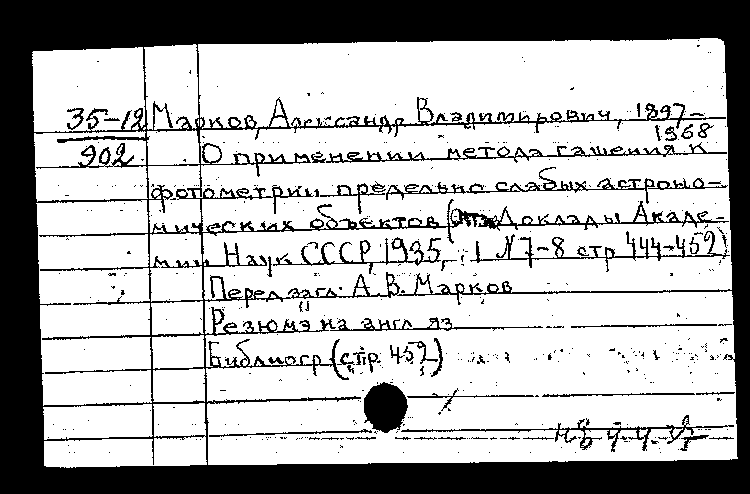 35-12 Марков, Александр Владимирович, 1897-
1968
902 О применении метода гашения к
фотометрии предельно слабых астроно-
мических объектов (Доклады Акаде-
мии Наук СССР, 1935, 1 N 7-8 стр 444-452)
Перед загл: А. В. Марков
Резюмэ на англ яз
Библиогр (стр. 452)